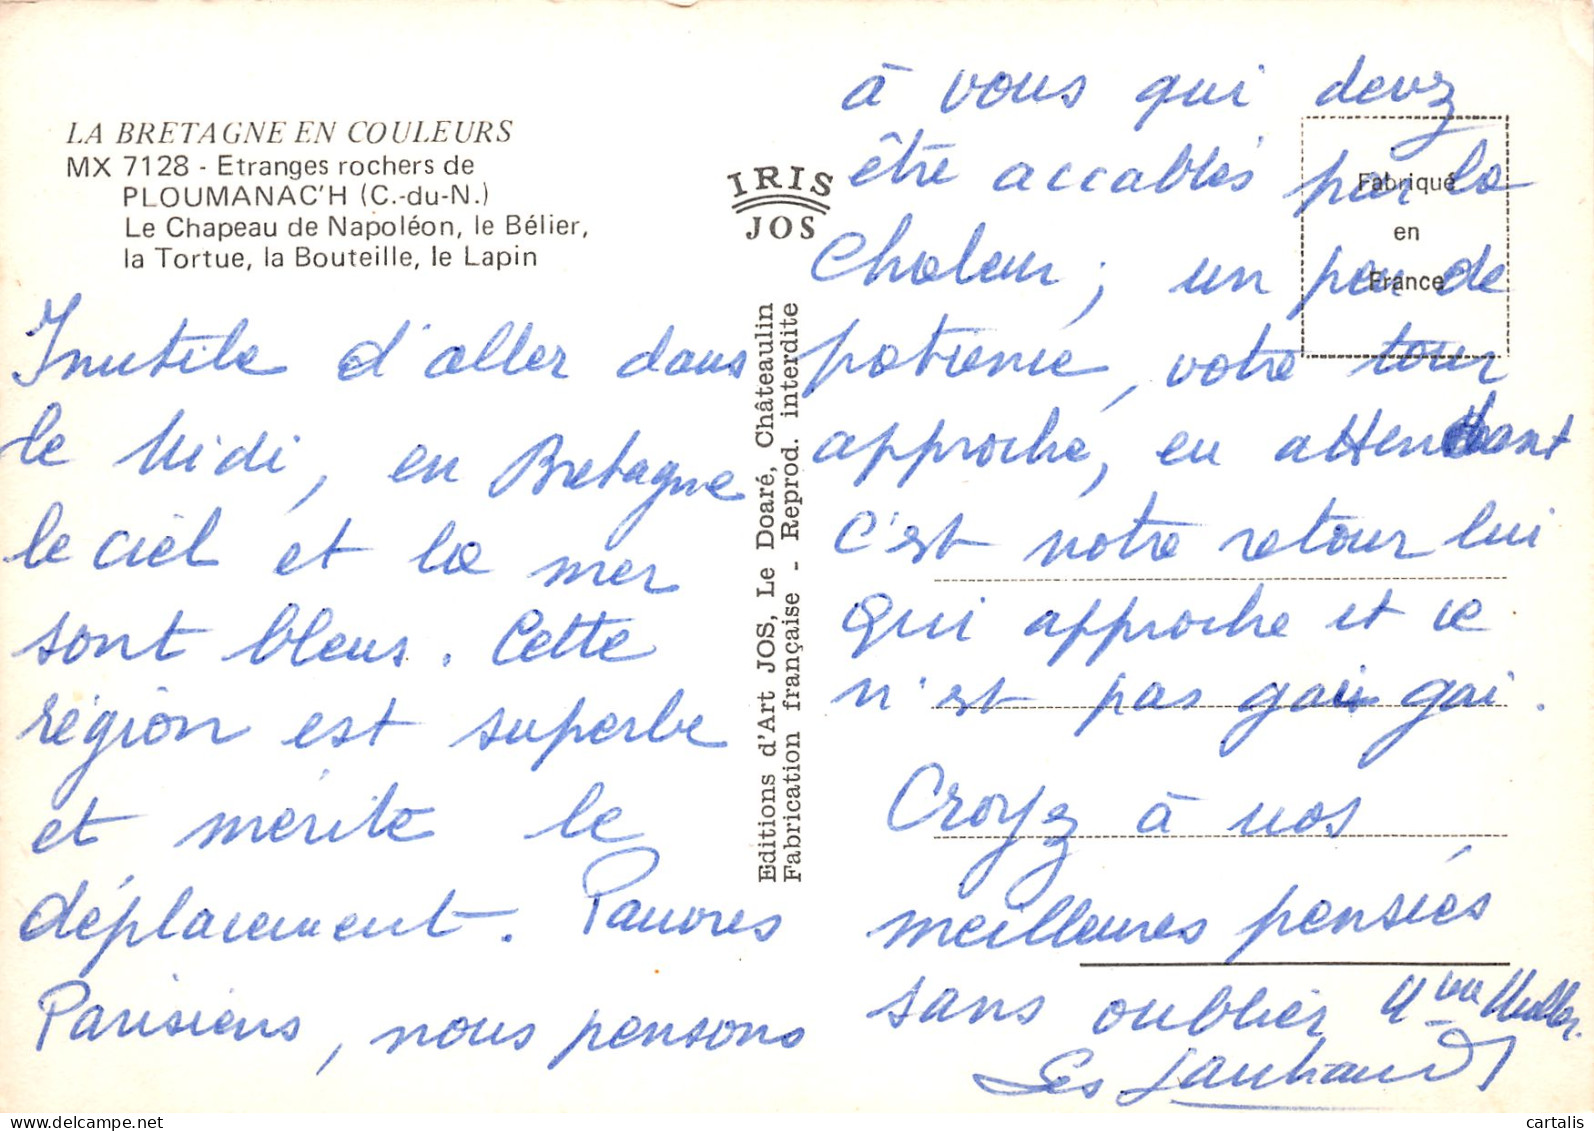 LA BRETAGNE EN COULEURS
MX 7128 - Etranges rochers de
PLOUMANAC'H (C.-du-N.)
Le Chapeau de Napoléon, le Bélier,
la Tortue, la Bouteille, le Lapin
Inutile d'aller dans
le Midi, en Bretagne
le ciel et la mer
sont bleus. Cette
région est superbe
et mérite le
déplacement. Pauvres
Parisiens, nous pensons
IRIS
JOS
Editions d'Art JOS, Le Doaré, Châteaulin
Fabrication française - Reprod. interdite
Fabriqué
en
France
à vous qui devez
être accablés par la
Chaleur ; un peu de
patience, votre tour
approche, en attendant
c'est notre retour lui
qui approche et ce
n'est pas gai gai.
Croyez à nos
meilleures pensées
sans oublier Mme Muller.
Les
cartalis